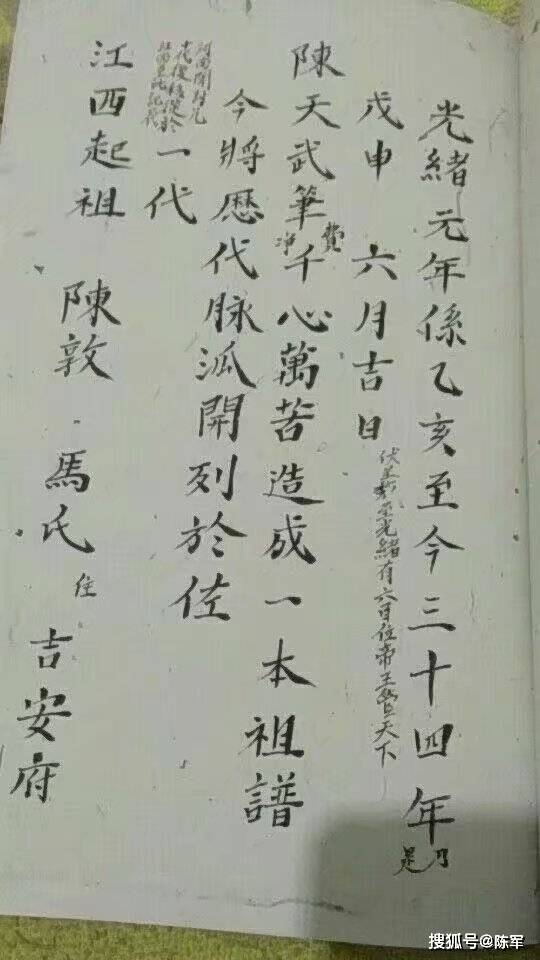 光緒元年係乙亥至今三十四年乃是
戊申 六月吉日
伏羲至光緒有六百位帝王管天下
陳天武筆 净費千心萬苦造成一本祖譜
今將歷代脉派開列於佐
一代
江西起祖 陳敦 馬氏 住 吉安府
搜狐号@陈军